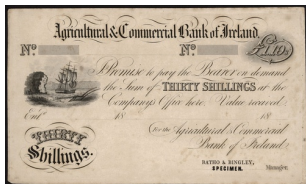 Agricultural & Commercial Bank of Ireland
Nº Nº £1.10s
I Promise to pay the Bearer on demand
the Sum of THIRTY SHILLINGS at the
Company's Office here. Value received
Entd 18 18
For the Agricultural & Commercial
Bank of Ireland
THIRTY
Shillings.
BATHO & BINGLEY,
SPECIMEN. Manager.